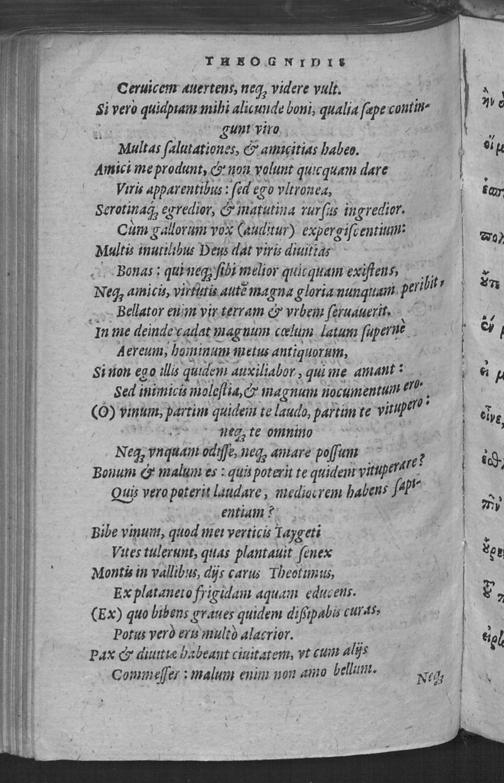 THEOGNIDIS
Ceruicem auertens, neq; videre vult.
Si verò quidpiam mihi alicunde boni, qualia sæpe contin-
gunt viro
Multas salutationes, & amicitias habeo.
Amici me produnt, & non volunt quicquam dare
Viris apparentibus: sed ego vltronea,
Serotinaq; egredior, & matutina rursus ingredior.
Cùm gallorum vox (auditur) expergiscentium:
Multis inutilibus Deus dat viris diuitias
Bonas: qui neq; sibi melior quicquam existens,
Neq; amicis, virtutis autē magna gloria nunquam peribit,
Bellator enim vir terram & vrbem seruauerit.
In me deinde cadat magnum cœlum latum supernè
Aereum, hominum metus antiquorum,
Si non ego illis quidem auxiliabor, qui me amant:
Sed inimicis molestia, & magnum nocumentum ero.
(O) vinum, partim quidem te laudo, partim te vitupero:
neq; te omnino
Neq; vnquam odisse, neq; amare possum
Bonum & malum es: quis poterit te quidem vituperare?
Quis vero poterit laudare, mediocrem habens sapi-
entiam?
Bibe vinum, quod mei verticis Taygeti
Vites tulerunt, quas plantauit senex
Montis in vallibus, dijs carus Theotimus,
Ex plataneto frigidam aquam educens.
(Ex) quo bibens graues quidem dissipabis curas,
Potus verò eris multò alacrior.
Pax & diuitiæ habeant ciuitatem, vt cum alijs
Commesser: malum enim non amo bellum.
Neq;